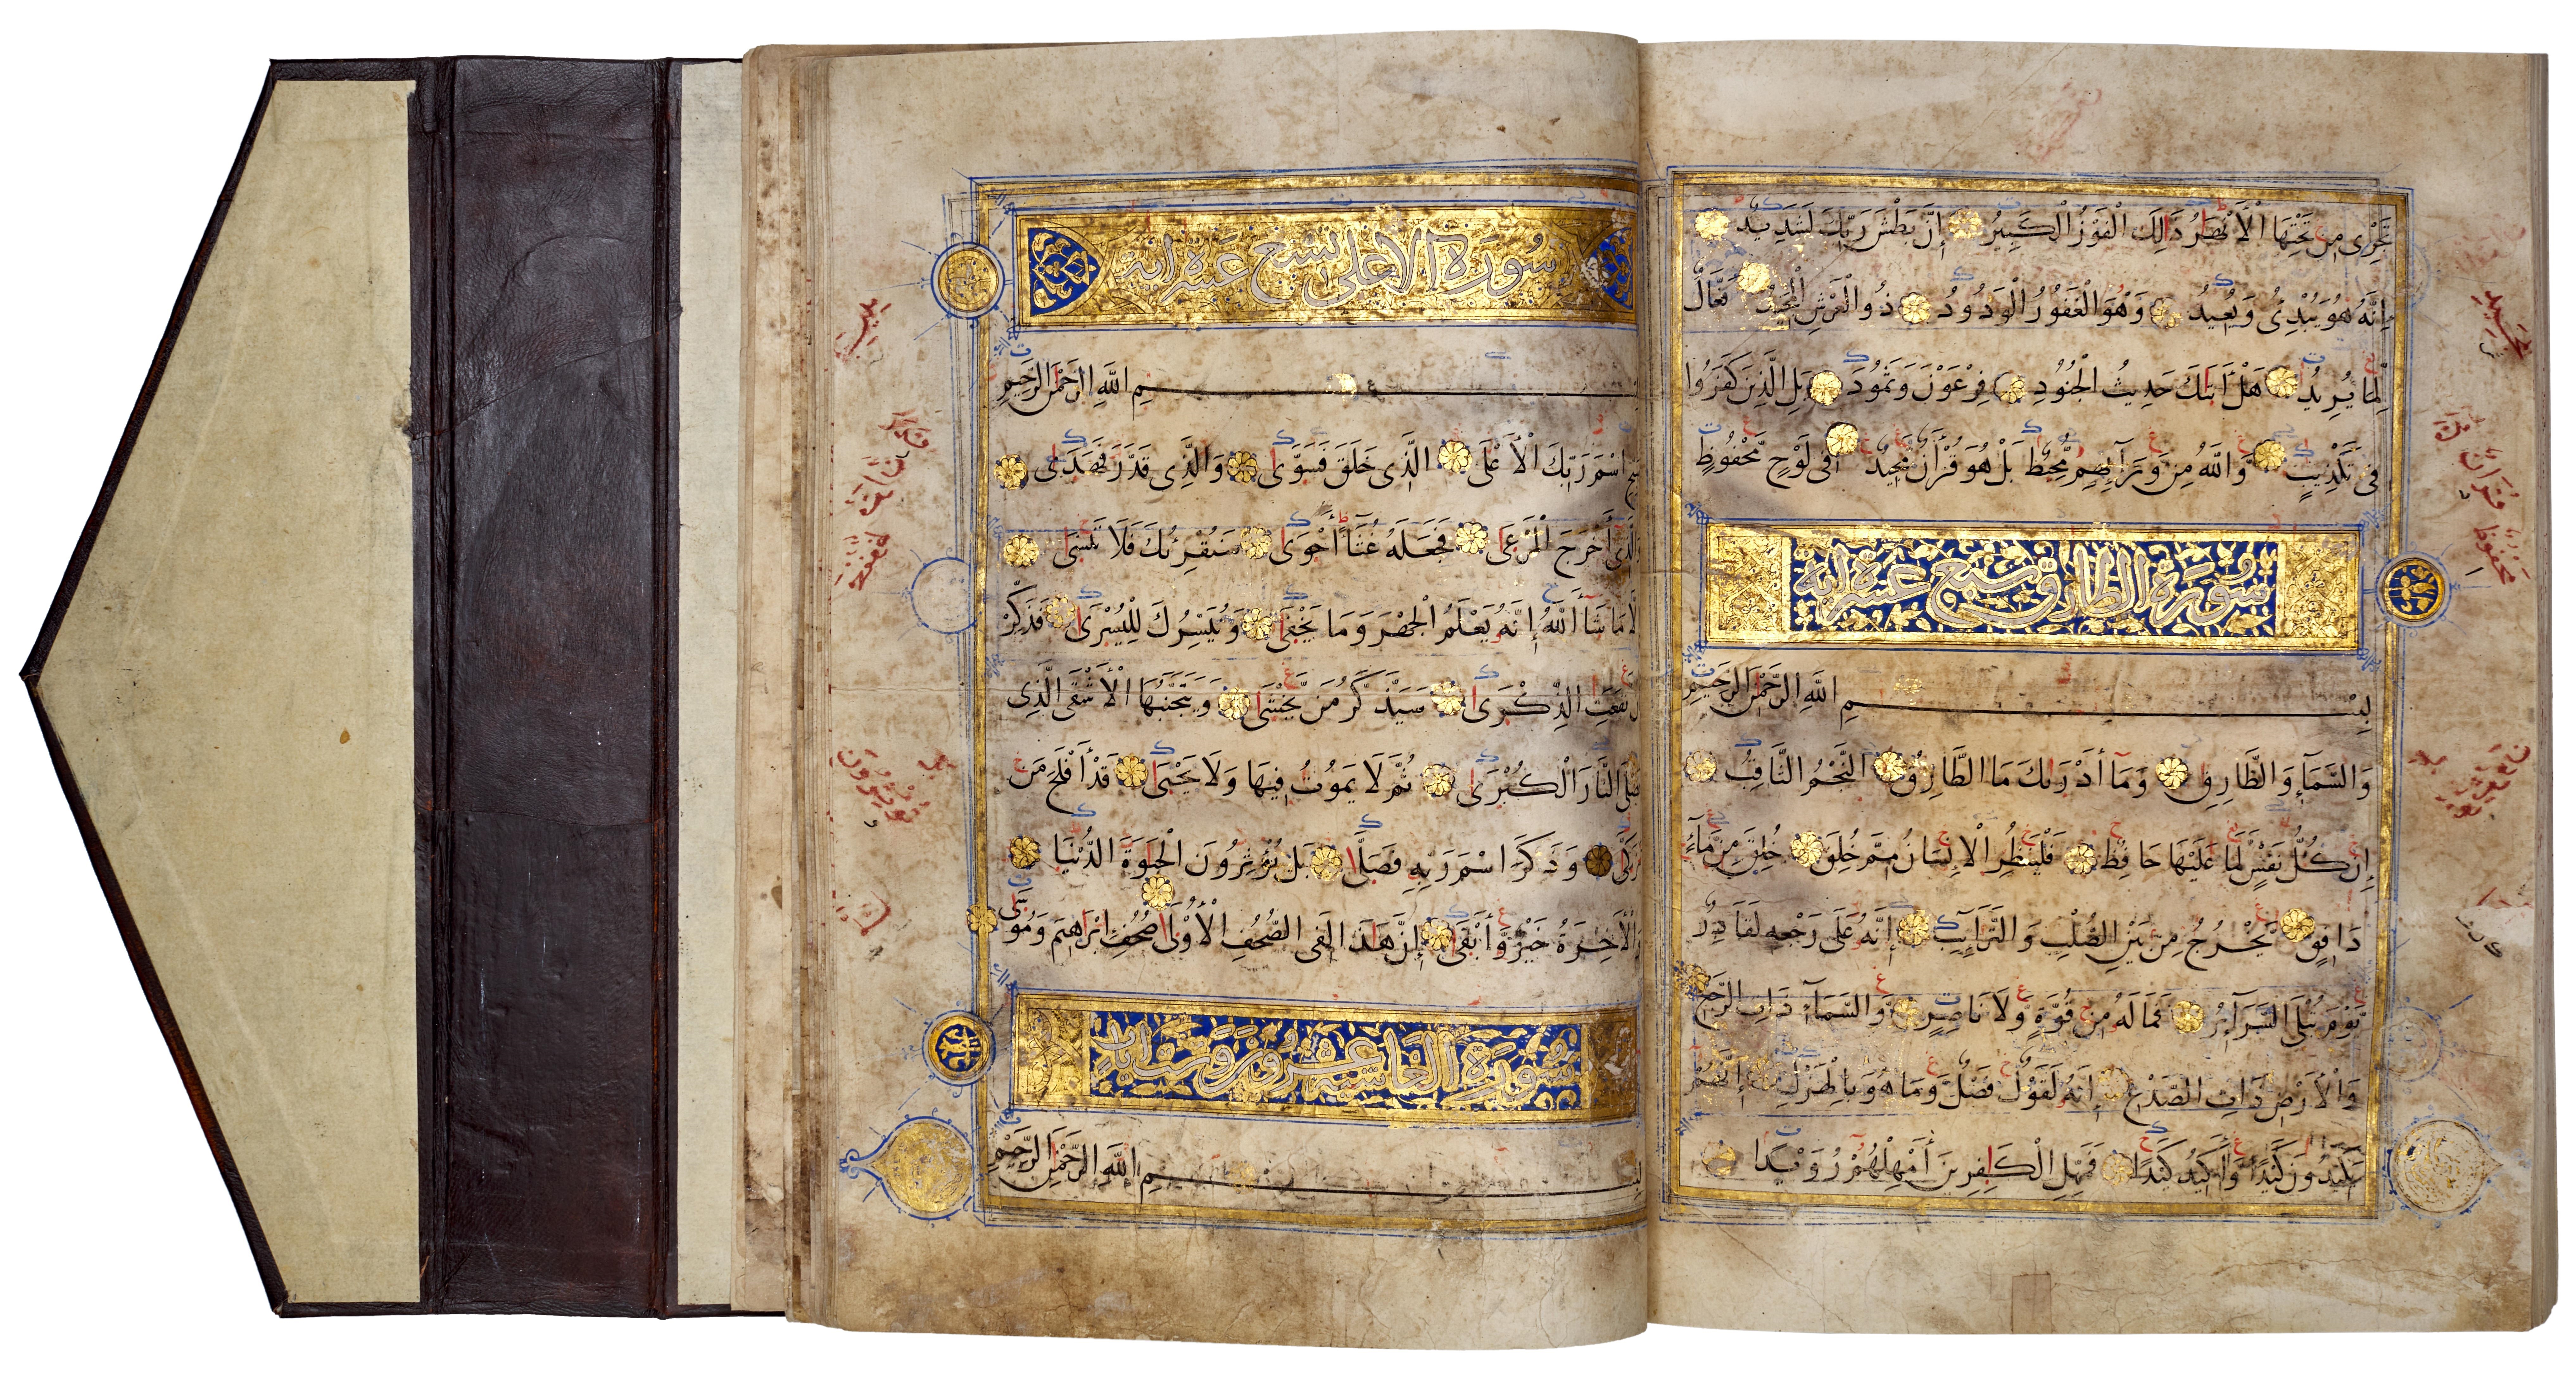 تَجْرِى مِن تَحْتِهَا الْأَنْهَارُ ذَالِكَ الْفَوْزُ الْكَبِيرُ إِنَّ بَطْشَ رَبِّكَ لَشَدِيدٌ
إِنَّهُ هُوَ يُبْدِئُ وَيُعِيدُ وَهُوَ الْغَفُورُ الْوَدُودُ ذُو الْعَرْشِ الْمَجِيدُ فَعَّالٌ
لِّمَا يُرِيدُ هَلْ أَتَىٰكَ حَدِيثُ الْجُنُودِ فِرْعَوْنَ وَثَمُودَ بَلِ الَّذِينَ كَفَرُوا
فِى تَكْذِيبٍ وَاللَّهُ مِن وَرَآئِهِم مُّحِيطٌ بَلْ هُوَ قُرْآنٌ مَّجِيدٌ فِى لَوْحٍ مَّحْفُوظٍ
سُورَة الطارق سبع عشرة اية
بِسْمِ اللَّهِ الرَّحْمٰنِ الرَّحِيمِ
وَالسَّمَآءِ وَالطَّارِقِ وَمَآ أَدْرَىٰكَ مَا الطَّارِقُ النَّجْمُ الثَّاقِبُ
إِن كُلُّ نَفْسٍ لَّمَّا عَلَيْهَا حَافِظٌ فَلْيَنظُرِ الْإِنسَانُ مِمَّ خُلِقَ خُلِقَ مِن مَّآءٍ
دَافِقٍ يَخْرُجُ مِن بَيْنِ الصُّلْبِ وَالتَّرَآئِبِ إِنَّهُ عَلَى رَجْعِهِ لَقَادِرٌ
يَوْمَ تُبْلَى السَّرَآئِرُ فَمَا لَهُ مِن قُوَّةٍ وَلَا نَاصِرٍ وَالسَّمَآءِ ذَاتِ الرَّجْعِ
وَالْأَرْضِ ذَاتِ الصَّدْعِ إِنَّهُ لَقَوْلٌ فَصْلٌ وَمَا هُوَ بِالْهَزْلِ إِنَّهُمْ
يَكِيدُونَ كَيْدًا وَأَكِيدُ كَيْدًا فَمَهِّلِ الْكَافِرِينَ أَمْهِلْهُمْ رُوَيْدًا
سُورَة الاعلى تسع عشرة اية
بِسْمِ اللَّهِ الرَّحْمٰنِ الرَّحِيمِ
سَبِّحِ اسْمَ رَبِّكَ الْأَعْلَى الَّذِى خَلَقَ فَسَوَّىٰ وَالَّذِى قَدَّرَ فَهَدَىٰ
وَالَّذِى أَخْرَجَ الْمَرْعَىٰ فَجَعَلَهُ غُثَآءً أَحْوَىٰ سَنُقْرِئُكَ فَلَا تَنسَىٰ
إِلَّا مَا شَآءَ اللَّهُ إِنَّهُ يَعْلَمُ الْجَهْرَ وَمَا يَخْفَىٰ وَنُيَسِّرُكَ لِلْيُسْرَىٰ فَذَكِّرْ
إِن نَّفَعَتِ الذِّكْرَىٰ سَيَذَّكَّرُ مَن يَخْشَىٰ وَيَتَجَنَّبُهَا الْأَشْقَى الَّذِى
يَصْلَى النَّارَ الْكُبْرَىٰ ثُمَّ لَا يَمُوتُ فِيهَا وَلَا يَحْيَىٰ قَدْ أَفْلَحَ مَن
تَزَكَّىٰ وَذَكَرَ اسْمَ رَبِّهِ فَصَلَّىٰ بَلْ تُؤْثِرُونَ الْحَيَوٰةَ الدُّنْيَا
وَالْآخِرَةُ خَيْرٌ وَأَبْقَىٰ إِنَّ هٰذَا لَفِى الصُّحُفِ الْأُولَىٰ صُحُفِ إِبْرَاهِيمَ وَمُوسَىٰ
سُورَة الغاشية عشرون وست ايات
بِسْمِ اللَّهِ الرَّحْمٰنِ الرَّحِيمِ